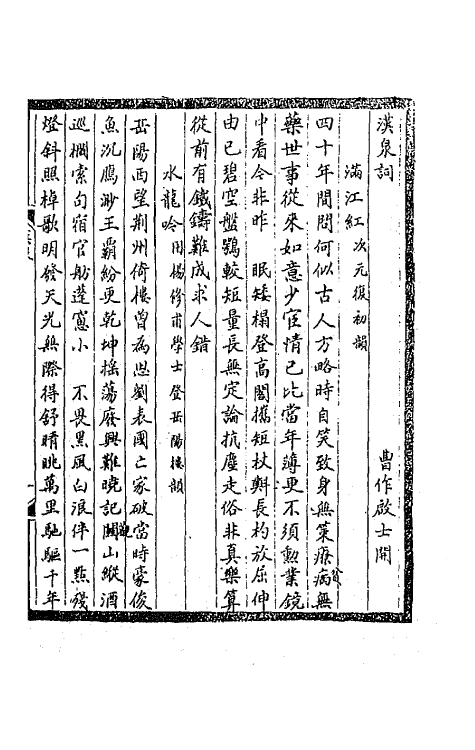 漢泉詞　曹作啟士開
滿江紅次元復初韻
四十年間問何似古人方略時自笑致身無策療病無
藥世事從來如意少宦情已比當年薄更不須勳業鏡
中看今非昨　眠矮榻登高閣攜短杖斟長杓放屈伸
由已碧空盤鶚較短量長無定論抗塵走俗非真樂算
從前有鐵鑄難成求人錯
水龍吟用楊修甫學士登岳陽樓韻
岳陽西望荆州倚樓曾為思劉表國亡家破當時豪俊
魚沉鴈渺王霸紛更乾坤搖蕩廢興難曉記關山縱酒
巡櫩索句宿官舫蓬窻小　不畏黑風白浪伴一點殘
燈斜照棹歌明發天光無際得舒晴眺萬里馳驅千年